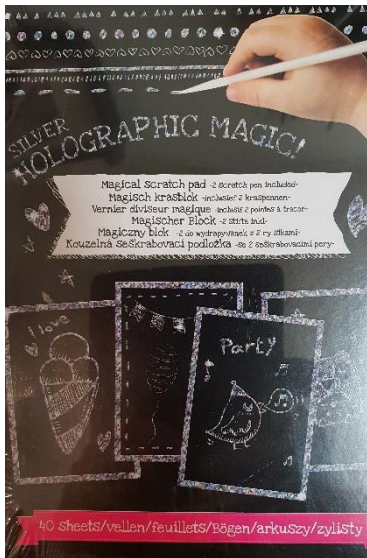 SILVER
HOLOGRAPHIC MAGIC!
Magical scratch pad -2 scratch pen included-
Magisch krasblok -inclusief 2 kraspennen-
Vernier diviseur magique -inclusif 2 pointes à tracer-
Magischer Block -2 stifte inkl-
Magiczny blok -2 do wydrapywanek z 2 ry sikami-
Kouzelná seškrabovací podložka -se 2 seškrabovacími pery-
I love
Party
40 sheets/vellen/feuillets/Bögen/arkuszy/zylisty